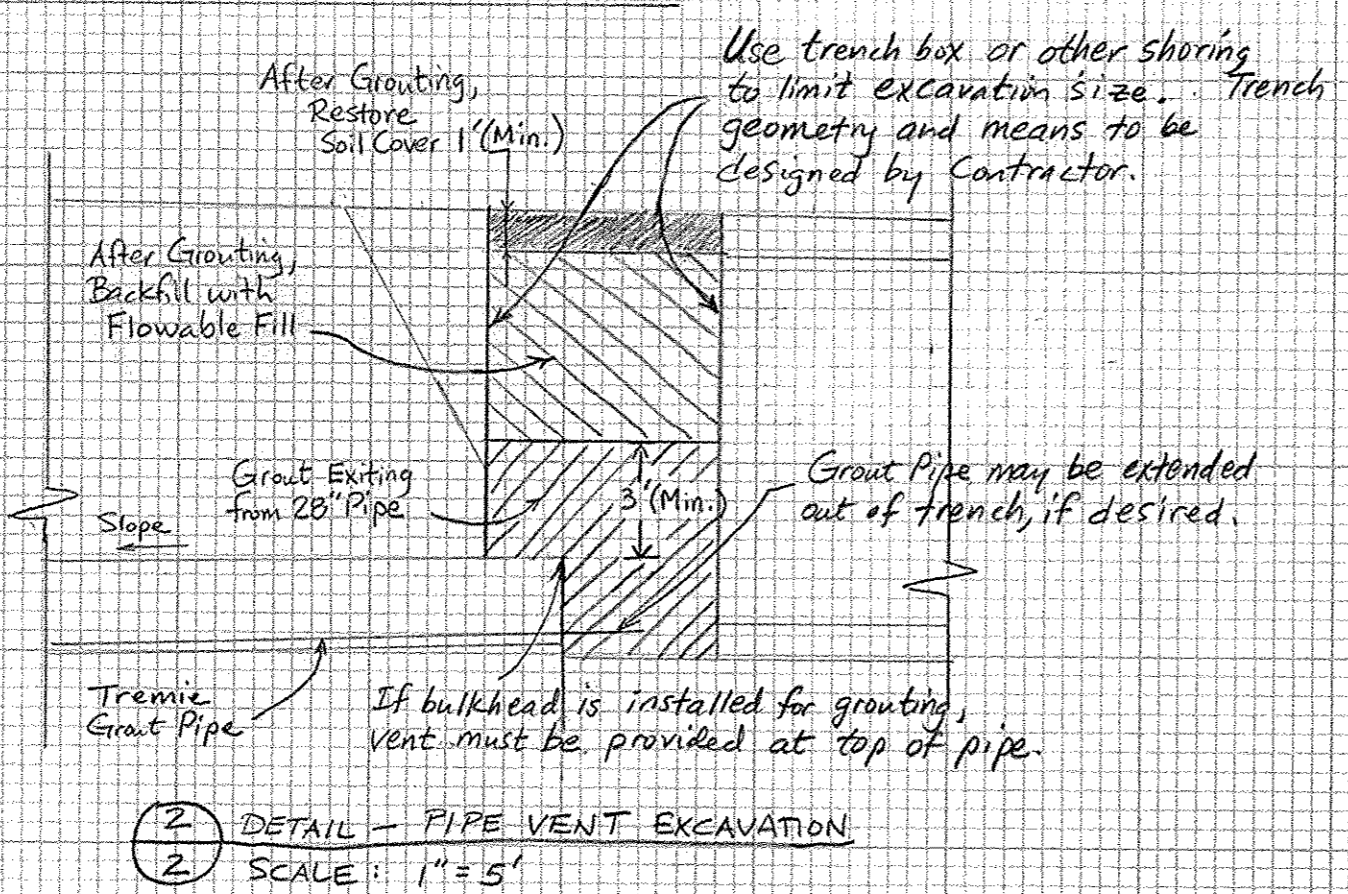 After Grouting,
Restore
Soil Cover 1'(Min.)
Use trench box or other shoring
to limit excavation size. Trench
geometry and means to be
designed by Contractor.
After Grouting,
Backfill with
Flowable Fill
Grout Exiting
from 28" Pipe
3'(Min.)
Grout Pipe may be extended
out of trench, if desired.
Slope
Tremie
Grout Pipe
If bulkhead is installed for grouting,
vent must be provided at top of pipe.
2
2
DETAIL - PIPE VENT EXCAVATION
SCALE: 1" = 5'